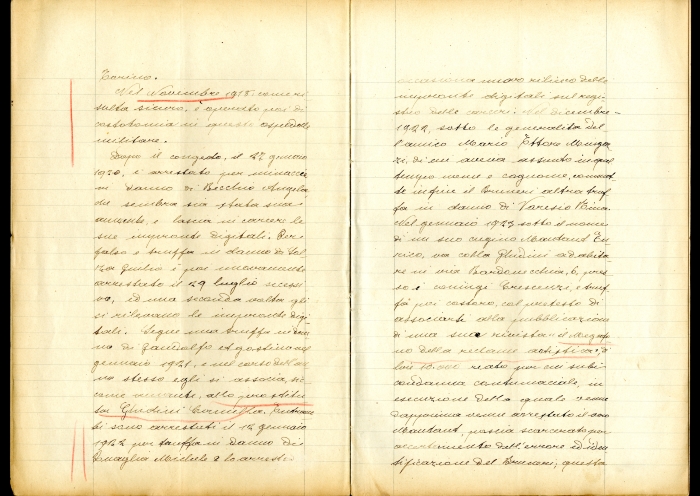 Torino.
Nel Novembre 1918, come ri
sulta sicuro, è operato poi di
costotomia in questo ospedale
militare.
Dopo il congedo, il 27 gennaio
1920, è arrestato per minaccie
in danno di Bicchio Angela
che sembra sia stata sua
amante, e lascia in carcere le
sue impronte digitali. Per
falso e truffa in danno di
Giulio è poi nuovamente
arrestato il 29 luglio succes
sivo, ed una seconda volta gli
si rilevano le impronte digi
tali. Segue una truffa in dan
no di Gandolfo Agostino nel
gennaio 1921, e nel corso dell'an
no stesso egli si associa, si
come amante, alla prostitu
ta Ghidini Camilla. Entram
bi sono arrestati il 12 gennaio
1922 per truffa in danno di
Michele e lo arresto
occasiona nuovo rilievo delle
impronte digitali sul regi
stro delle carceri. Nel dicembre
1922, sotto le generalità del
l'amico Mario Ettore
di cui aveva assunto in quel
tempo nome e cognome, commet
te infine il Bruneri altra truf
fa in danno di Varesio
Nel gennaio 1923 sotto il nome
di un suo cugino Mautant En
rico, va colla Ghidini ad abita
re in via Bardonecchia, 6, pres
so i coniugi Crescenzi, e truf
fa poi costoro, col pretesto di
associarsi alla pubblicazione
di una sua rivista: il
no della reclame artistica, di
lire 10.000 reato per cui subi
condanna contumaciale, in
esecuzione della quale venne
dapprima venne arrestato il vero
Mautant, poscia scarcerato per
accertamento dell'errore ed iden
tificazione del Bruneri; questa